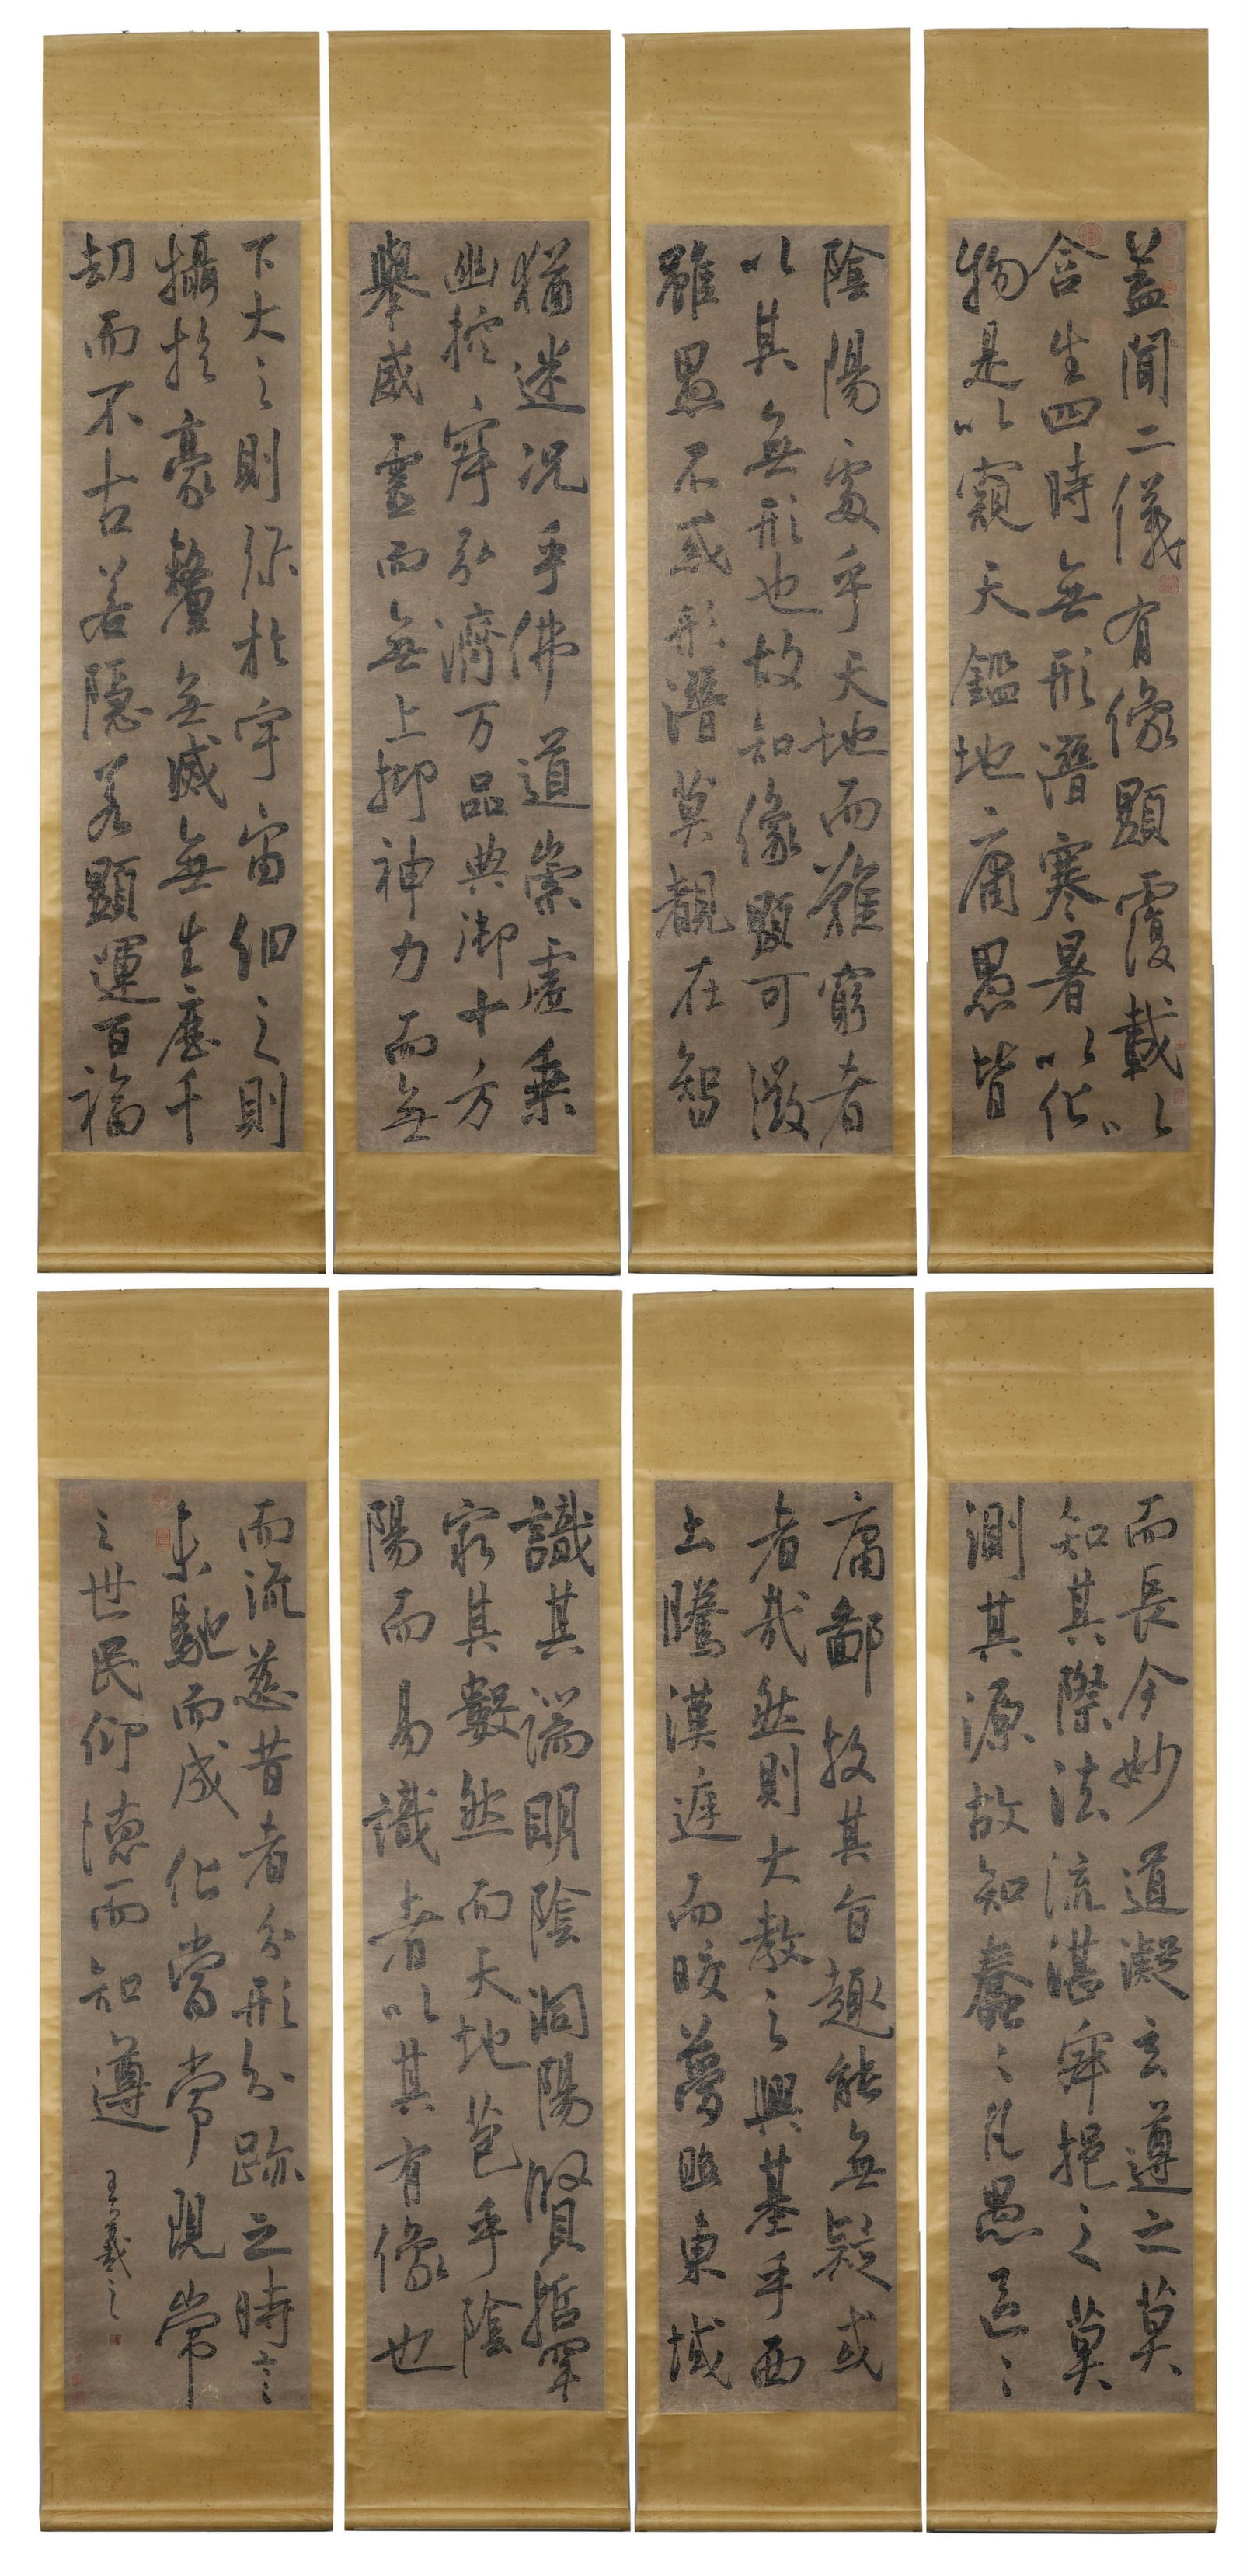 蓋聞二儀有像顯覆載以
含生四時無形潛寒暑以化
物是以窺天鑑地庸愚皆
陰陽處乎天地而難窮者
以其無形也故知像顯可徵
雖愚不惑形潛莫覩在智
猶迷況乎佛道崇虛乘
幽控寂弘濟万品典御十方
舉威靈而無上抑神力而無
下大之則弥於宇宙細之則
攝於豪氂無滅無生歷千
劫而不古若隱若顯運百福
而長今妙道凝玄遵之莫
知其際法流湛寂挹之莫
測其源故知蠢〻凡愚區〻
庸鄙投其旨趣能無疑或
者哉然則大教之興基乎西
土騰漢庭而皎夢照東域
識其端明陰洞陽賢哲罕
窮其數然而天地苞乎陰
陽而易識者以其有像也
而流慈昔者分形分跡之時言
未馳而成化當常現常
之世民仰德而知遵
王羲之